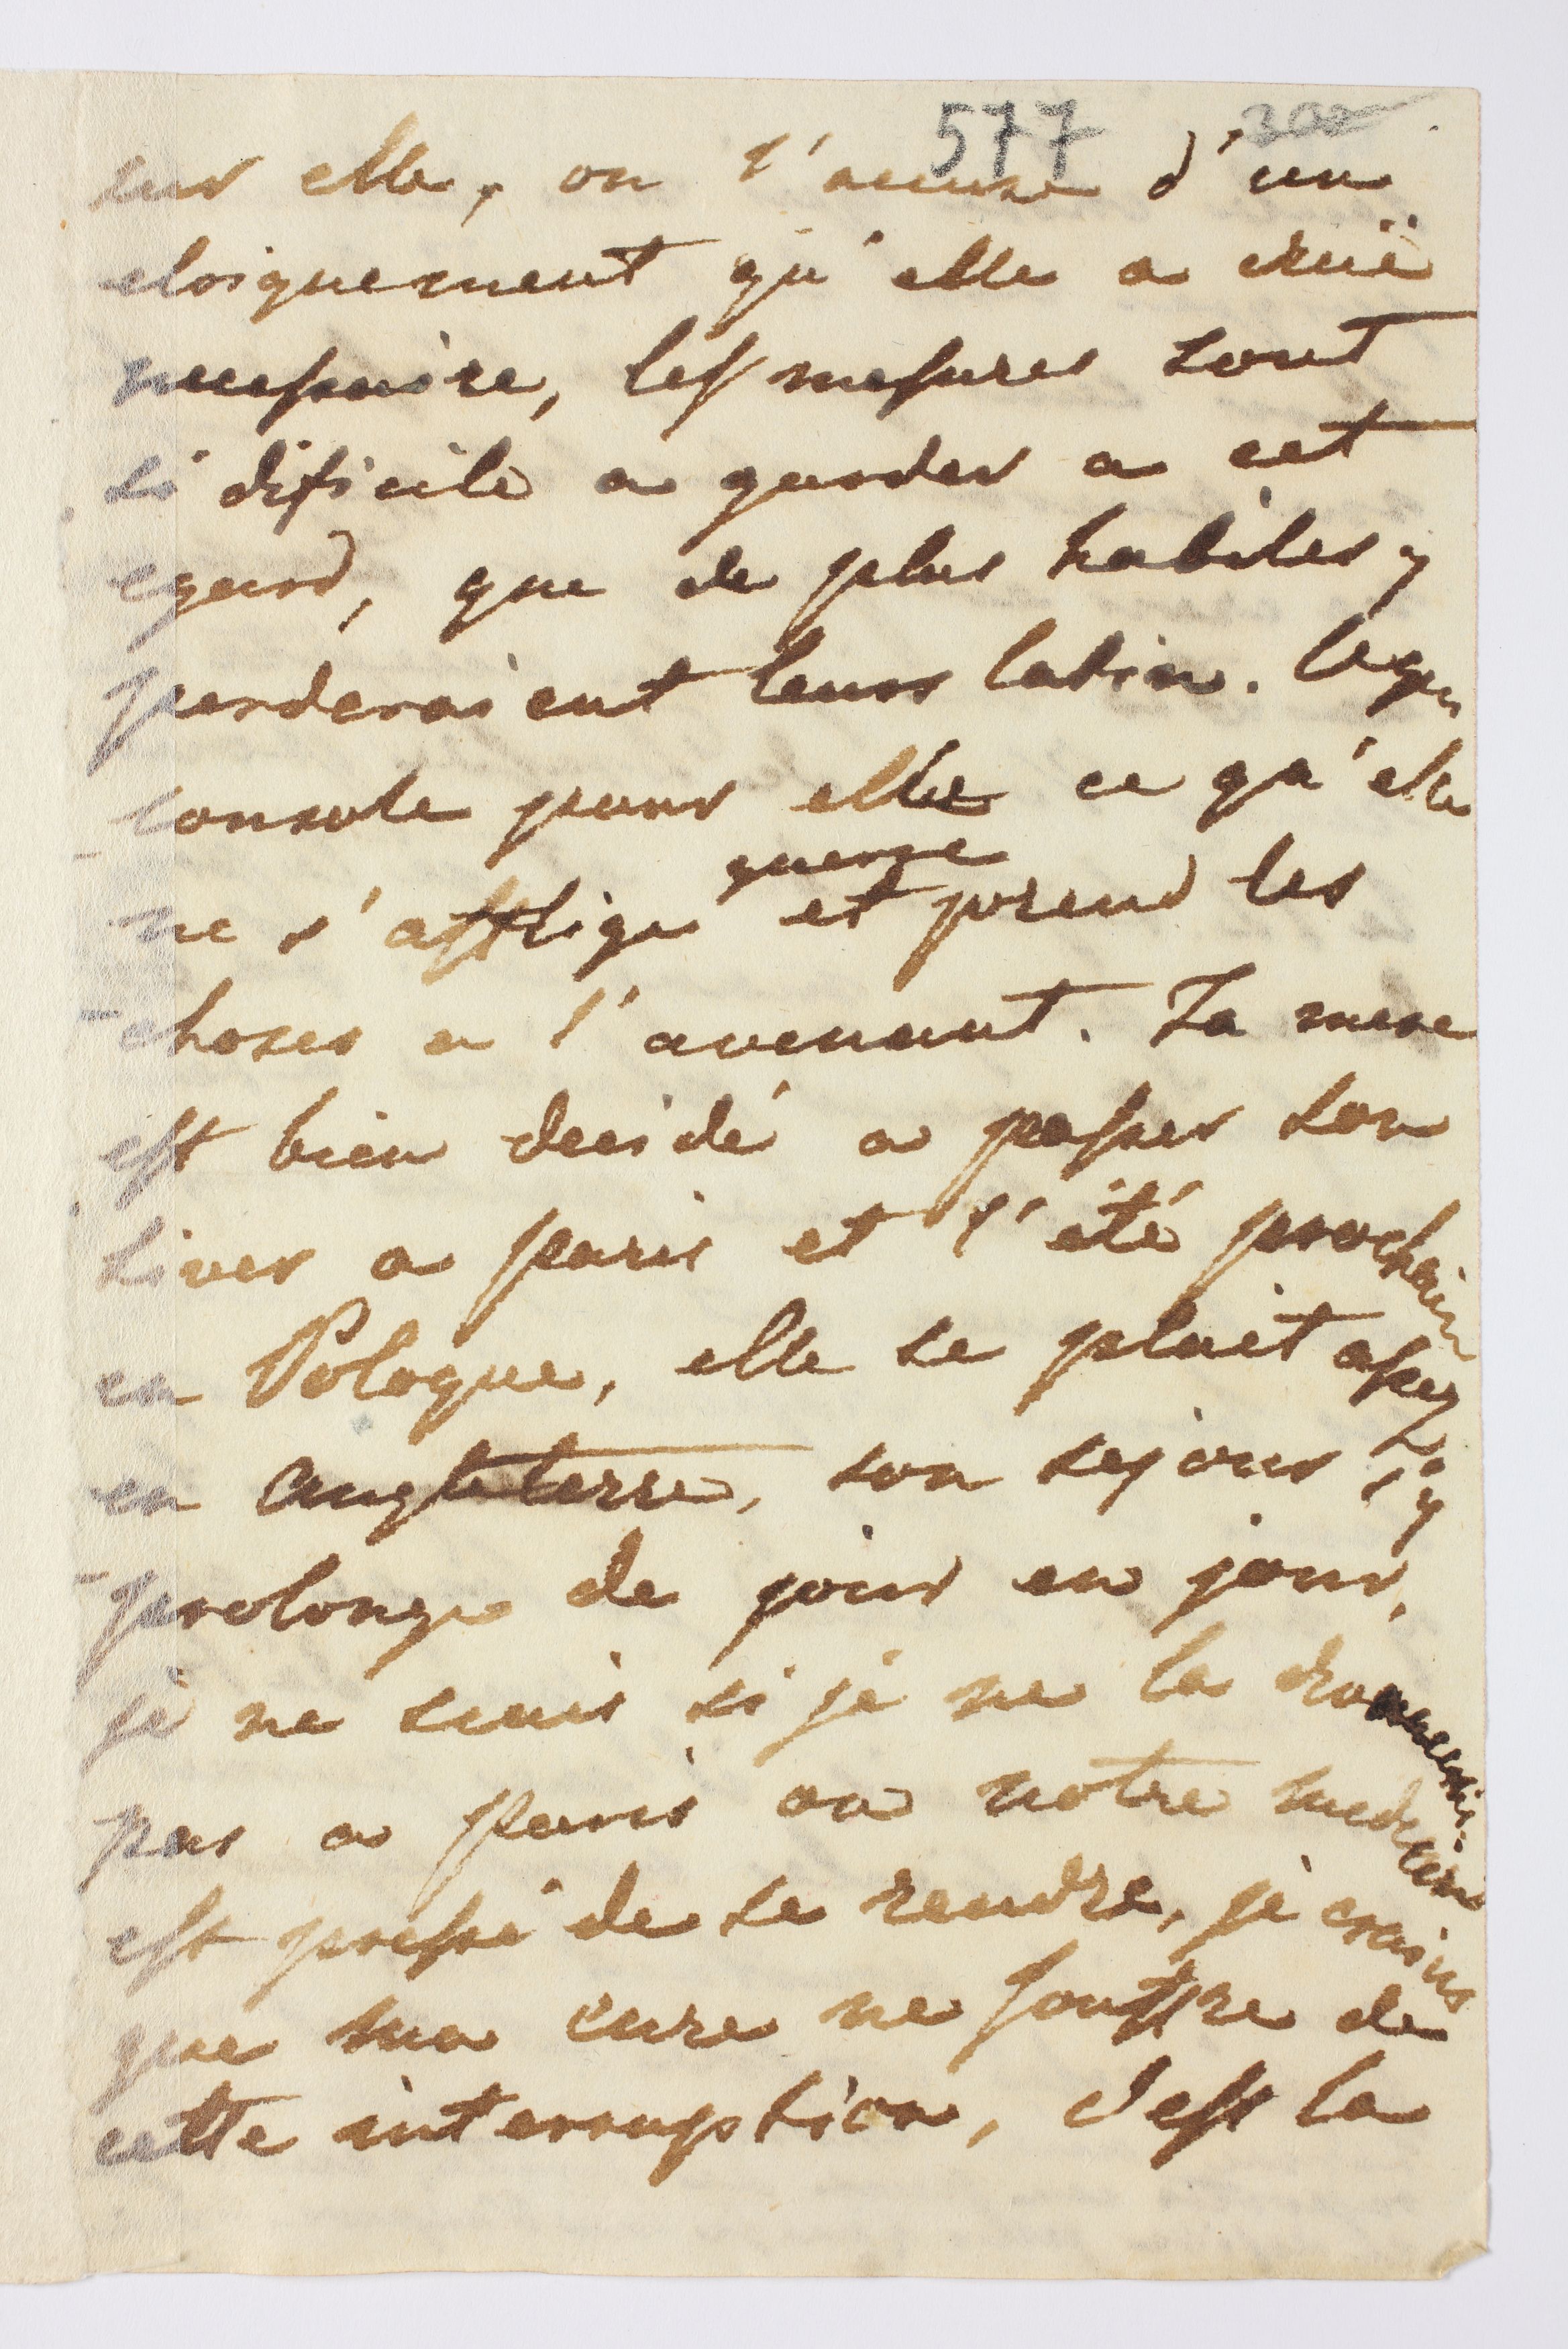 577 300
sur elle, on l'accuse d'un
eloignement qu'elle a cruë
necessaire, les mesures sont
si dificile a garder a cet
egard, que de plus habiles y
perderaient leurs latin. Ce qui
console pour elle ce qu'elle
ne s'afflige guerre et prend les
choses a l'avenant. Ta mere
est bien decidé a passer son
hiver a paris et l'été prochain
en Pologne, elle se plait assez
en Angleterre, son sejour s'y
prolonge de jour en jour,
je ne sais si je ne la
pas a Paris ou notre medecin
est pressé de se rendre, je crains
que ma cure ne souffre de
cette interruption, c'est la